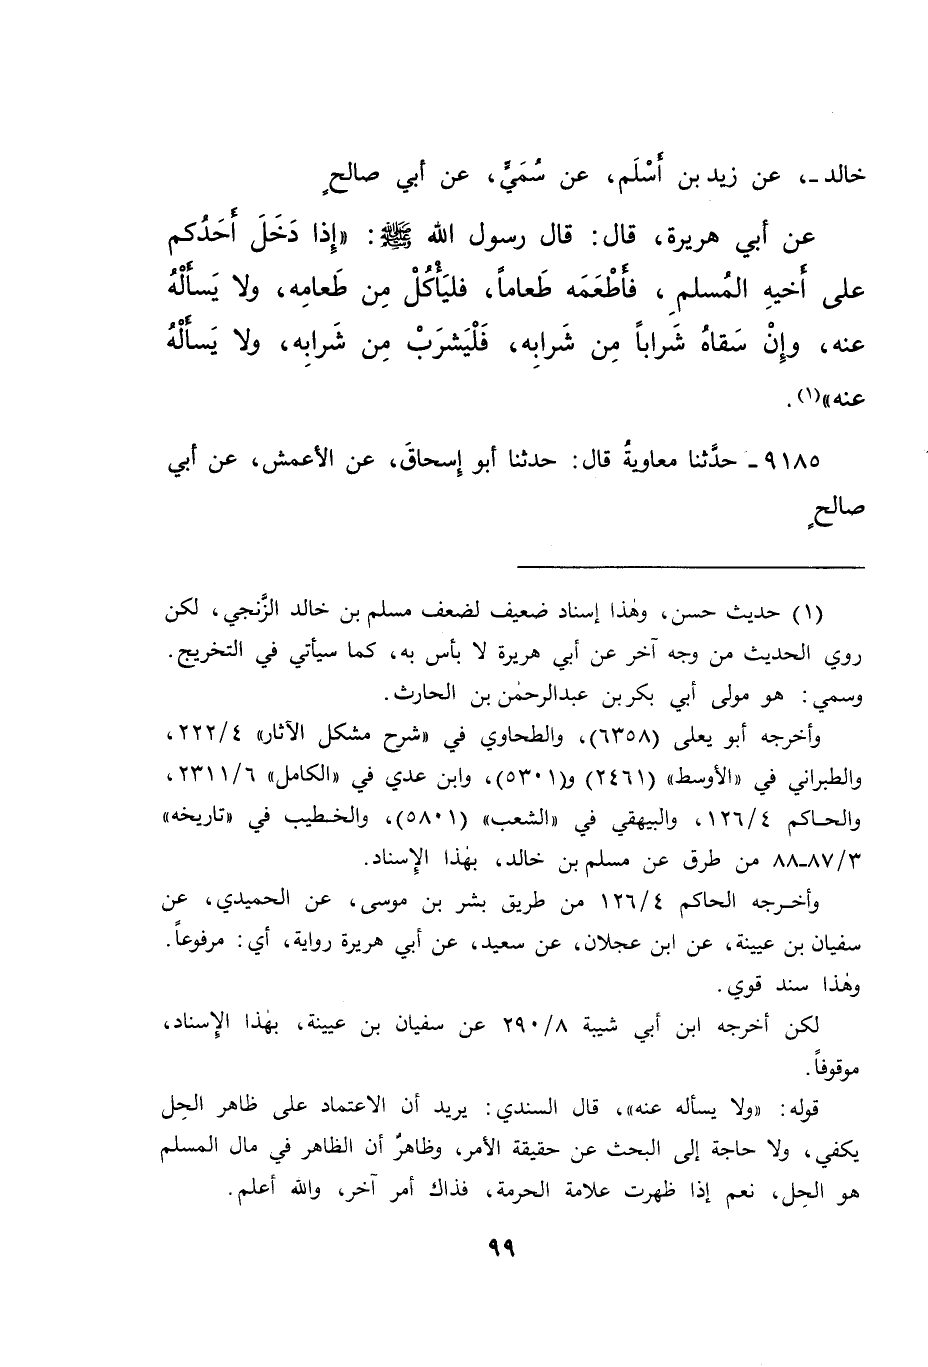 خالد ـ، عن زيد بن أَسْلَم، عن سُمَيٍّ، عن أبي صالحٍ
عن أبي هريرة، قال: قال رسول الله ﷺ: «إذا دَخَلَ أَحَدُكم
على أَخيهِ المُسلمِ، فأَطْعَمَه طَعاماً، فليَأْكُلْ مِن طَعامِه، ولا يَسأَلْهُ
عنه، وإنْ سَقاهُ شَراباً مِن شَرابِه، فَلْيَشرَبْ مِن شَرابِه، ولا يَسأَلْهُ
عنه»(١).
٩١٨٥ ـ حدَّثنا معاويةُ قال: حدثنا أبو إسحاقَ، عن الأعمش، عن أبي
صالحٍ
(١) حديث حسن، وهٰذا إسناد ضعيف لضعف مسلم بن خالد الزَّنجي، لكن
روي الحديث من وجه آخر عن أبي هريرة لا بأس به، كما سيأتي في التخريج.
وسمي: هو مولى أبي بكر بن عبدالرحمٰن بن الحارث.
وأخرجه أبو يعلى (٦٣٥٨)، والطحاوي في «شرح مشكل الآثار» ٢٢٢/٤،
والطبراني في «الأوسط» (٢٤٦١) و(٥٣٠١)، وابن عدي في «الكامل» ٢٣١١/٦،
والحاكم ١٢٦/٤، والبيهقي في «الشعب» (٥٨٠١)، والخطيب في «تاريخه»
٨٧/٣-٨٨ من طرق عن مسلم بن خالد، بهٰذا الإسناد.
وأخرجه الحاكم ١٢٦/٤ من طريق بشر بن موسى، عن الحميدي، عن
سفيان بن عيينة، عن ابن عجلان، عن سعيد، عن أبي هريرة رواية، أي: مرفوعاً.
وهٰذا سند قوي.
لكن أخرجه ابن أبي شيبة ٢٩٠/٨ عن سفيان بن عيينة، بهٰذا الإسناد،
موقوفاً.
قوله: «ولا يسأله عنه»، قال السندي: يريد أن الاعتماد على ظاهر الحِل
يكفي، ولا حاجة إلى البحث عن حقيقة الأمر، وظاهرٌ أن الظاهر في مال المسلم
هو الحِل، نعم إذا ظهرت علامة الحرمة، فذاك أمر آخر، والله أعلم.
٩٩